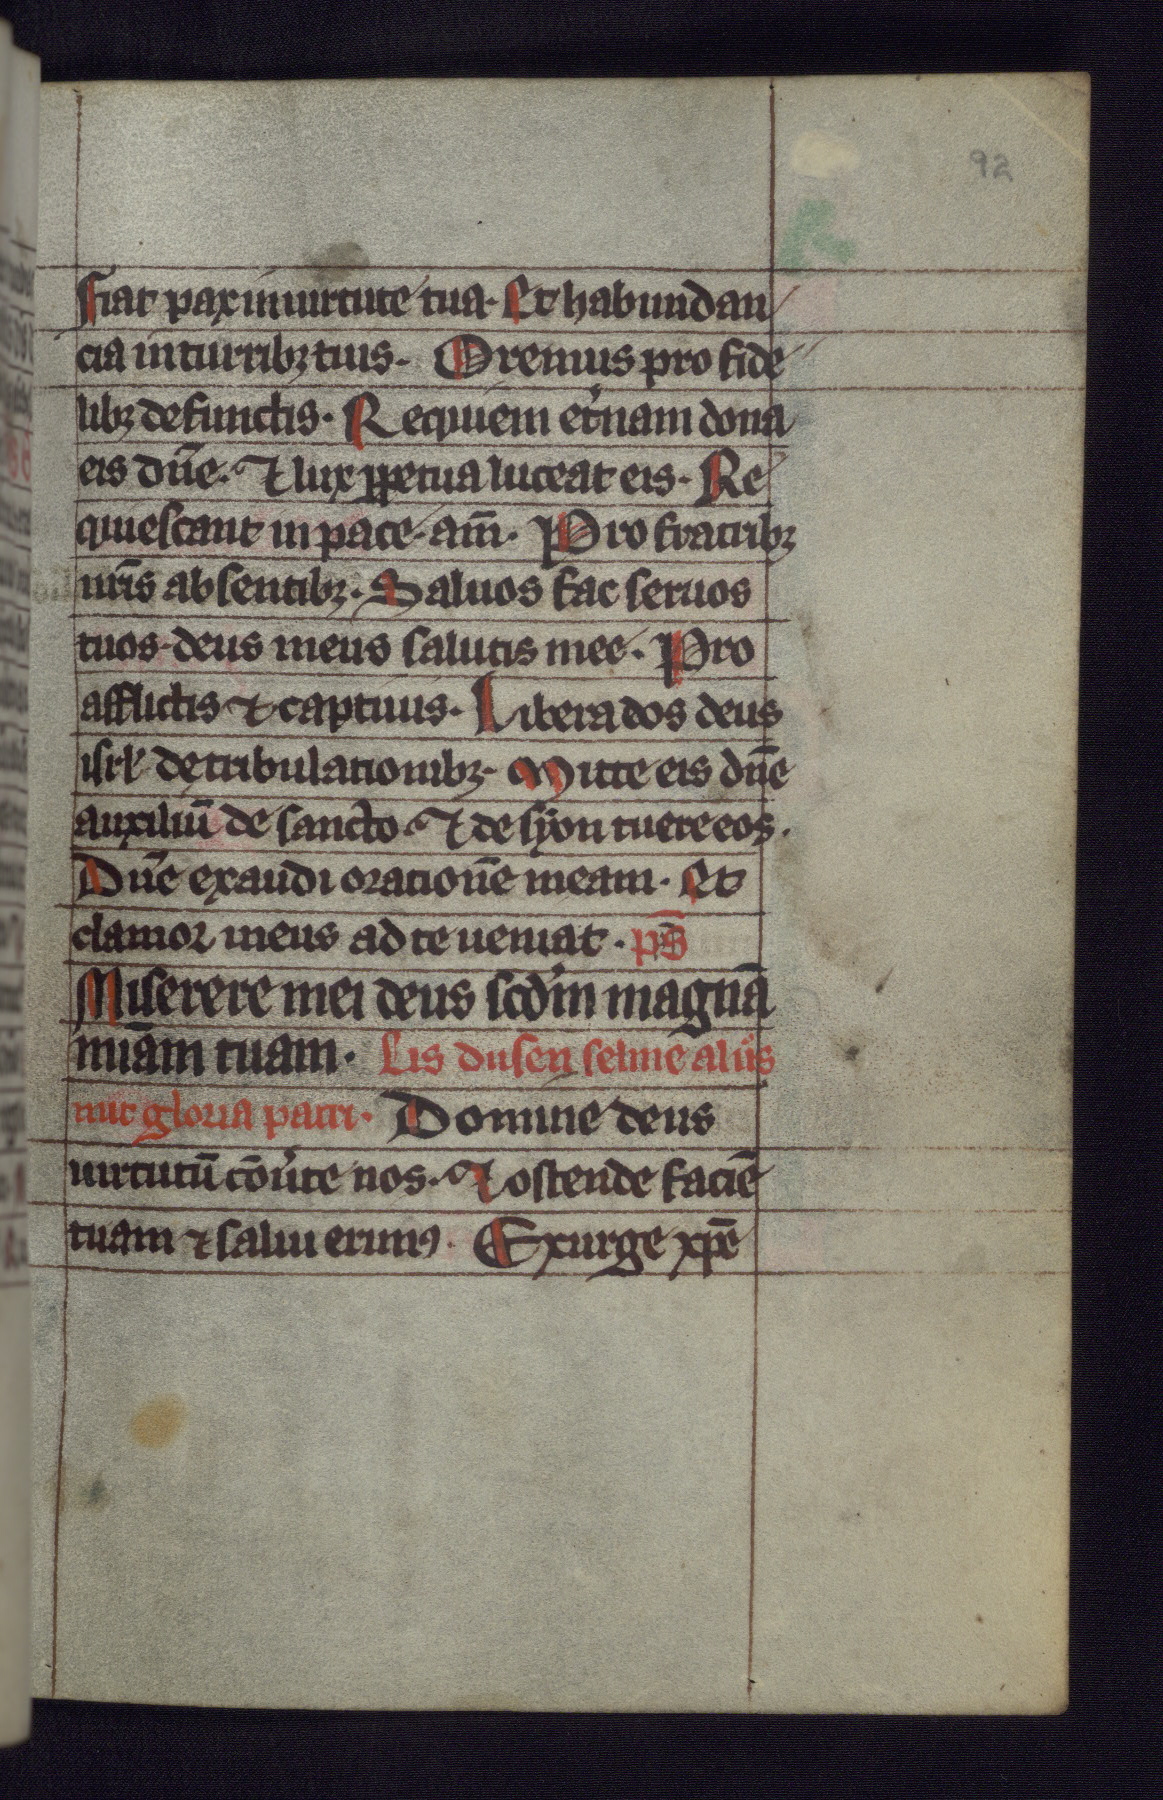 92
Fiat pax in uirtute tua. Et habundan
cia in turribꝫ tuis. Oremus pro fide
libꝫ defunctis. Requiem et̾nam dona
eis dn̄e. ⁊ lux ꝑpetua luceat eis. Re
quiescant in pace. am̄. Pro fratribꝫ
nr̄is absentibꝫ. Saluos fac seruos
tuos. deus meus salutis mee. Pro
afflictis ⁊ captiuis. Libera dos deus
isrl̄ de tribulationibꝫ. Mitte eis dn̄e
auxiliū de sancto. ⁊ de syon tuere eos.
Dn̄e exaudi oration̄e meam. Et
clamor meus ad te ueniat. ps̄
Miserere mei deus scd̾m magnā
mi̅am tuam. Lis dusen selme alu̾s
mit gloria patri. Domine deus
uirtutū cōu̾te nos. ⁊ ostende faciē
tuam ⁊ salui erimꝰ. Exurge xp̄e